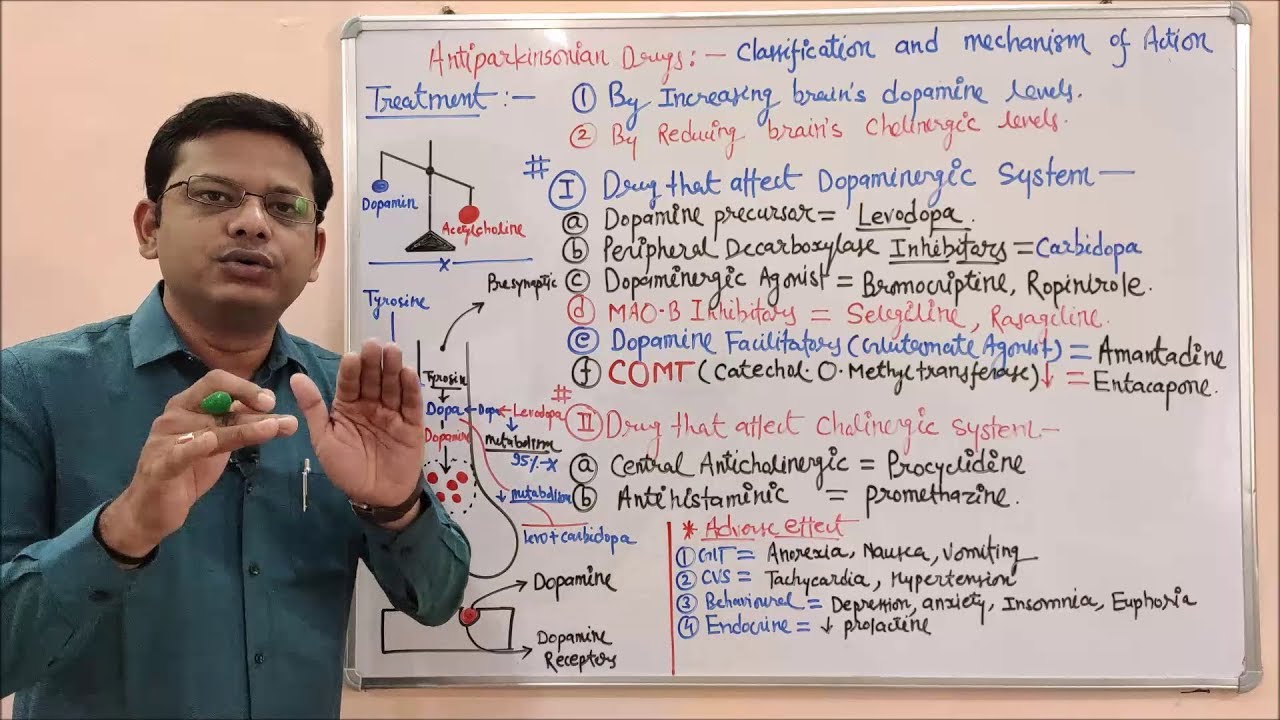 Antiparkinsonian Drugs:- Classification and mechanism of Action
Treatment:-
① By Increasing brain's dopamine levels.
② By Reducing brain's Cholinergic levels.
Dopamin
Acetylcholine
x
# Ⅰ Drug that affect Dopaminergic System—
ⓐ Dopamine precursor = Levodopa.
ⓑ Peripheral Decarboxylase Inhibitars = Carbidopa
ⓒ Dopaminergic Agonist = Bromocriptine, Ropinirole.
ⓓ MAO-B Inhibitars = Selegiline, Rasagiline.
ⓔ Dopamine Facilitators (Glutamate Agonist) = Amantadine
ⓕ COMT (Catechol-O-Methyltransferase)↓ = Entacapone.
# Ⅱ Drug that affect Cholinergic System—
ⓐ Central Anticholinergic = Procyclidine
ⓑ Antihistaminic = promethazine.
Presynaptic
Tyrosine
Tyrosin
Dopa ← Dopa ← Levodopa
Dopamine
metabolism
95%-x
↓ metabolism
levo+carbidopa
Dopamine
Dopamine
Receptors
* Adverse effect
① GIT = Anorexia, Nausea, vomiting
② CVS = Tachycardia, Hypertension
③ Behavioural = Depression, anxiety, Insomnia, Euphoria
④ Endocrine = ↓ prolactine